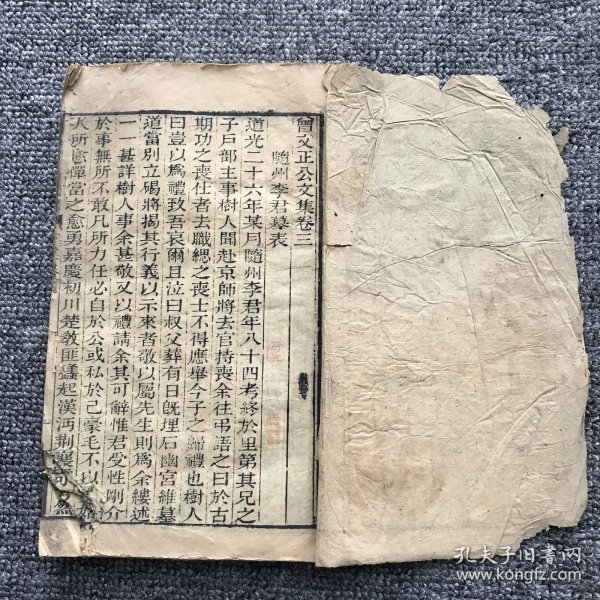 曾文正公文集卷三
隨州李君墓表
道光二十六年某月隨州李君年八十四考終於里第其兄之
子戶部主事樹人聞赴京師將去官持喪余往弔語之曰於古
期功之喪仕者去職緦之喪士不得應舉今子之歸禮也樹人
曰豈以為禮致吾哀爾且泣曰叔父葬有日既埋石幽宮維墓
道當別立碣將揭其行義以示來者敬以屬先生則為余縷述
一一甚詳樹人事余甚敬又以禮請余其可辭惟君受性剛介
於事無所不敢凡所力任必自於公或私於己毫毛不以
人所憊憚當之愈勇嘉慶初川楚教匪蠭起漢沔荊襄
孔夫子旧书网
www.kongfz.com